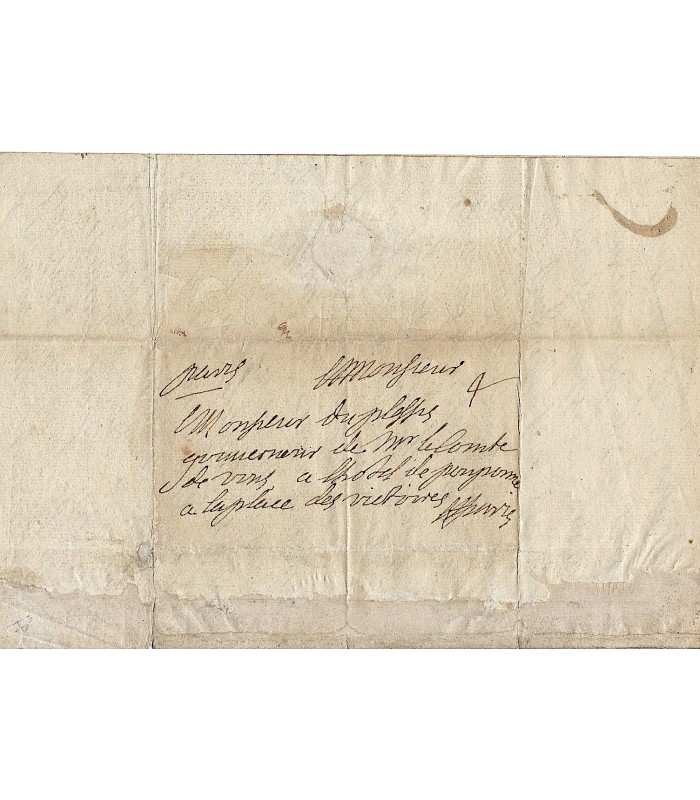 paris A Monsieur 4
Monsieur duplessis
gouuerneur de Mr le Comte
de vins, a lhotel de pomponne
a la place des victoires A paris